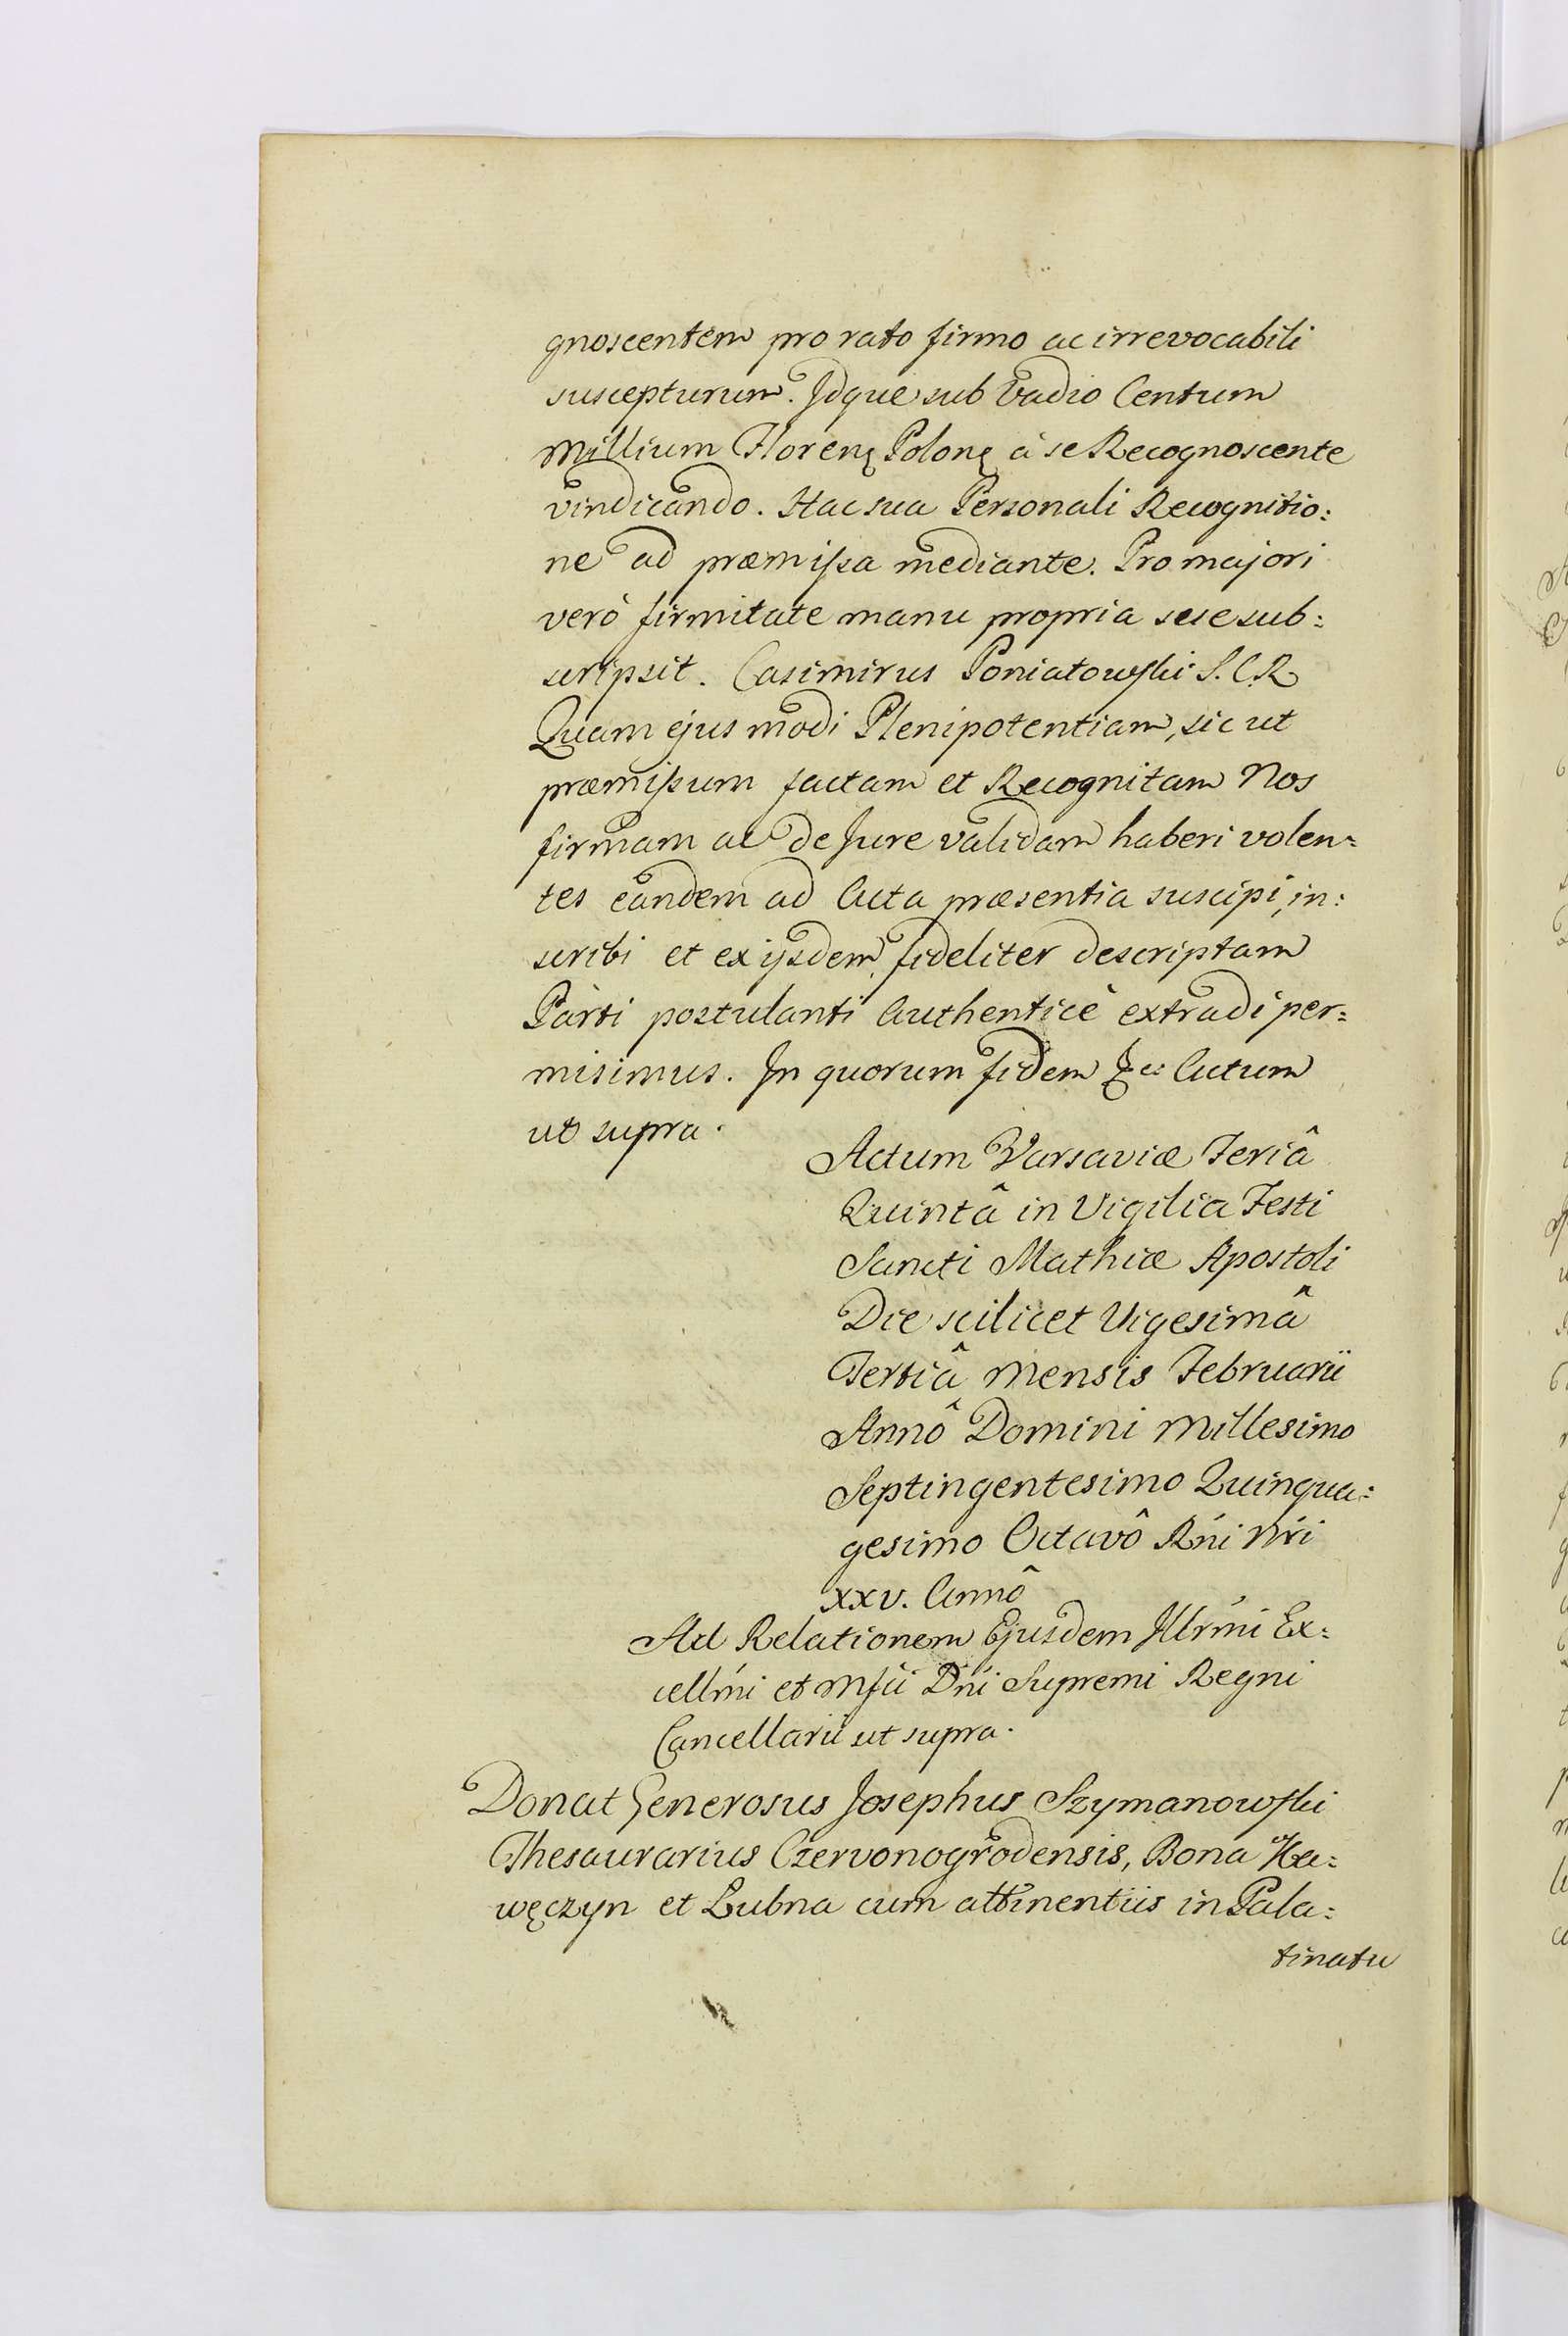 gnoscentem pro rato firmo ac irrevocabili
suscepturum. Idque sub Vadio Centum
Millium Florenę Polonę à se Recognoscente
vindicando. Hac sua Personali Recognitio:
ne ad præmissa mediante. Pro majori
verò firmitate manu propria sese sub:
scripsit. Casimirus Poniatowski S. C. R
Quam ejus modi Plenipotentiam, sic ut
præmissum factam et Recognitam Nos
firmam ac de Jure validam haberi volen=
tes eandem ad Acta præsentia suscipi, in:
scribi et ex ijsdem fideliter descriptam
Parti postulanti Authenticè extradi per=
misimus. In quorum fidem &c: Actum
ut supra.
Actum Varsaviæ Feriâ
Quintâ in Vigilia Festi
Sancti Mathiæ Apostoli
Die scilicet Vigesimâ
Tertiâ Mensis Februarii
Annô Domini Millesimo
Septingentesimo Quinqua:
gesimo Octavô Rńi Nri
XXV. Annô
Ad Relationem Ejusdem Illrmi Ex:
cellmi et Mfci Dńi Supremi Regni
Cancellarii ut supra.
Donat Generosus Josephus Szymanowski
Thesaurarius Czervonogrodensis, Bona Ka:
węczyn et Lubna cum attinentiis in Pala:
tinatu